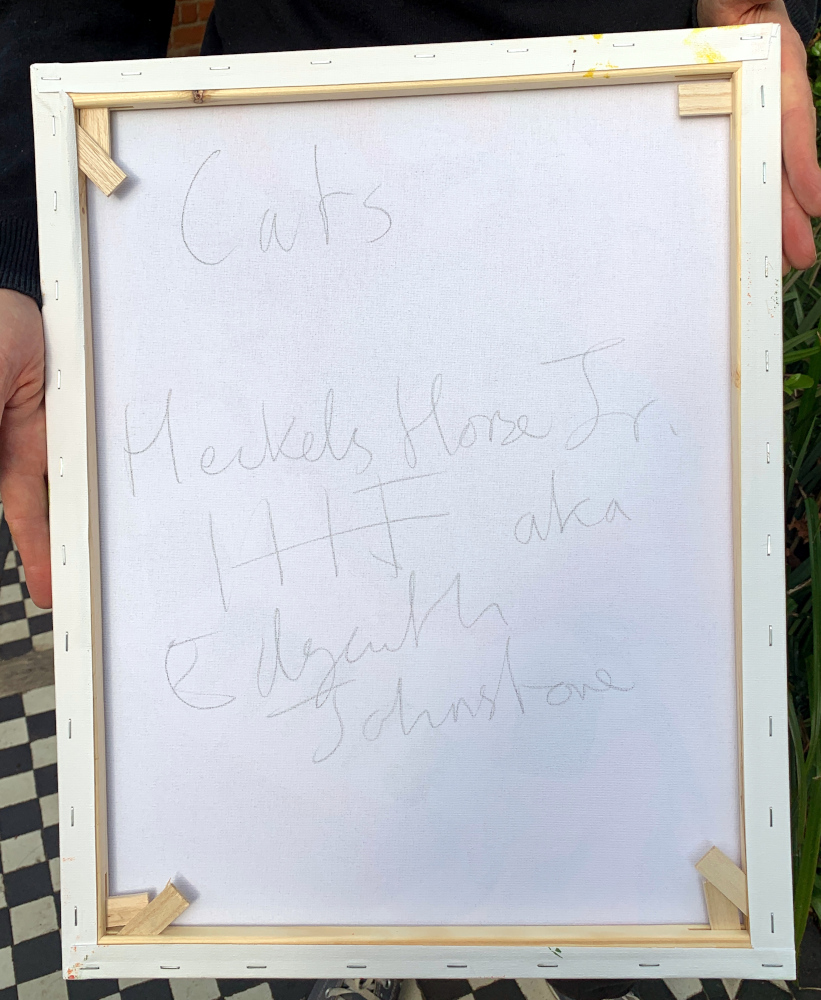 Cats
Heckels Horse Jr.
HHJ aka
Edgeworth
Johnstone